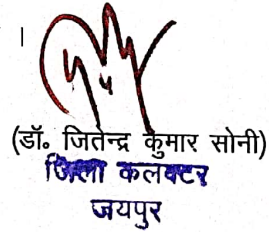 ।
(डॉ. जितेन्द्र कुमार सोनी)
जिला कलक्टर
जयपुर